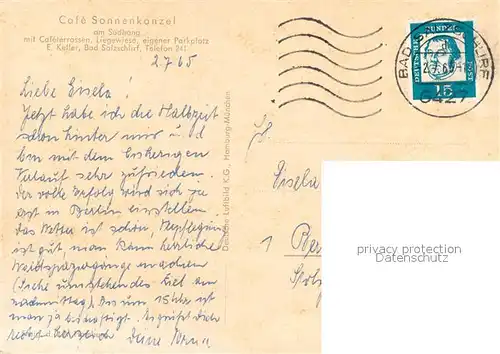 Café Sonnenkanzel
am Südhang,
mit Caféterrassen, Liegewiese, eigener Parkplatz
E. Keßler, Bad Salzschlirf, Telefon 241
2.7.65
Liebe Gisela!
Jetzt habe ich die Halbzeit
schon hinter mir u.
bin mit dem bisherigen
Verlauf sehr zufrieden.
Der volle Erfolg wird sich ja
erst in Berlin einstellen.
Das Wetter ist schön, Verpflegung
ist gut, man kann herrliche
Waldspaziergänge machen
(Siehe umstehendes Ziel am
nachmittag). Bis um 15 Uhr ist
man ja beschäftigt. Es grüßt Dich
recht herzlich Deine
Deutsche Luftbild K.G., Hamburg-München
DEUTSCHE BUNDESPOST
15
BAD SALZSCHLIRF
2.7.65
6427
Fr.
Gisela
1 Ber
privacy protection
Datenschutz